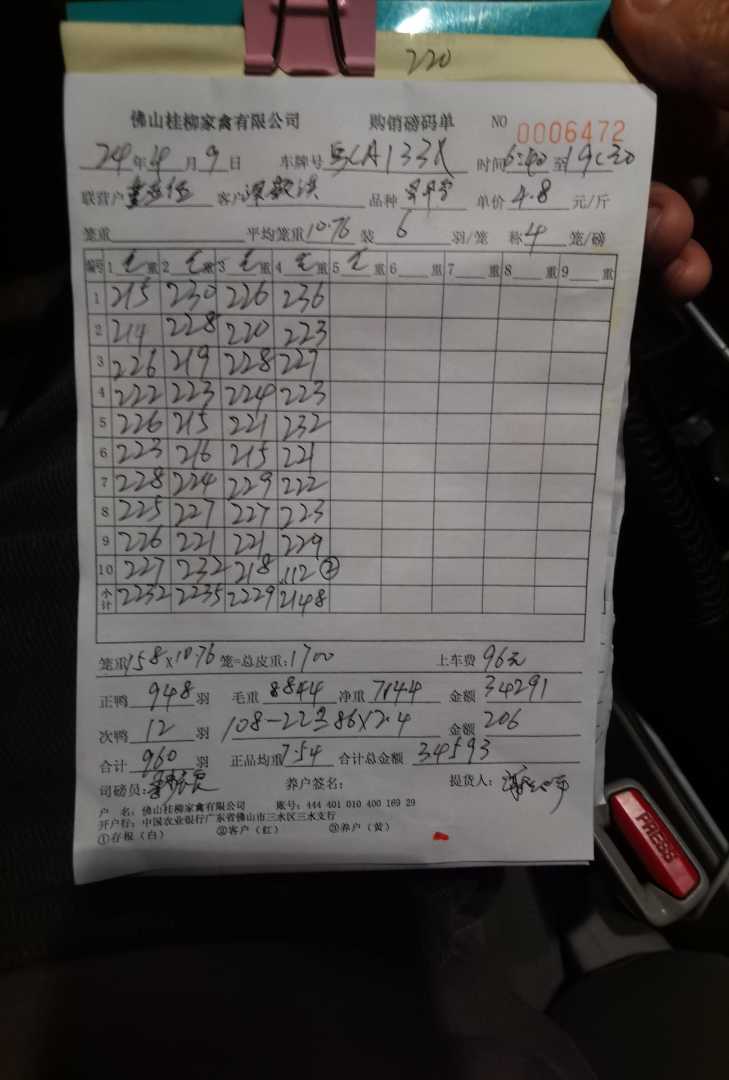 220
佛山桂柳家禽有限公司 购销磅码单 NO 0006472
24年4月9日 车牌号 A133X 时间 6:40 至 19:30
联营户 客户 品种 单价 4.8 元/斤
笼重 平均笼重 10.76 装 6 羽/笼 称 4 笼/磅
编号 1 毛重 2 毛重 3 毛重 4 毛重 5 毛重 6 重 7 重 8 重 9 重
1 215 230 226 236
2 214 228 220 223
3 226 219 228 227
4 222 223 224 223
5 226 215 221 232
6 223 216 215 221
7 228 224 229 222
8 225 227 227 223
9 226 221 221 229
10 227 232 218 112 ②
小计 2232 2235 2229 2148
笼重 158×10.76 笼=总皮重: 1700 上车费 96元
正鸭 948 羽 毛重 8844 净重 7144 金额 34291
次鸭 12 羽 108-22 86×2.4 金额 206
合计 960 羽 正品均重 7.54 合计总金额 34593
司磅员: 养户签名: 提货人:
户 名: 佛山桂柳家禽有限公司 账号: 444 401 010 400 169 29
开户行: 中国农业银行广东省佛山市三水区三水支行
①存根(白) ②客户(红) ③养户(黄)
PRESS